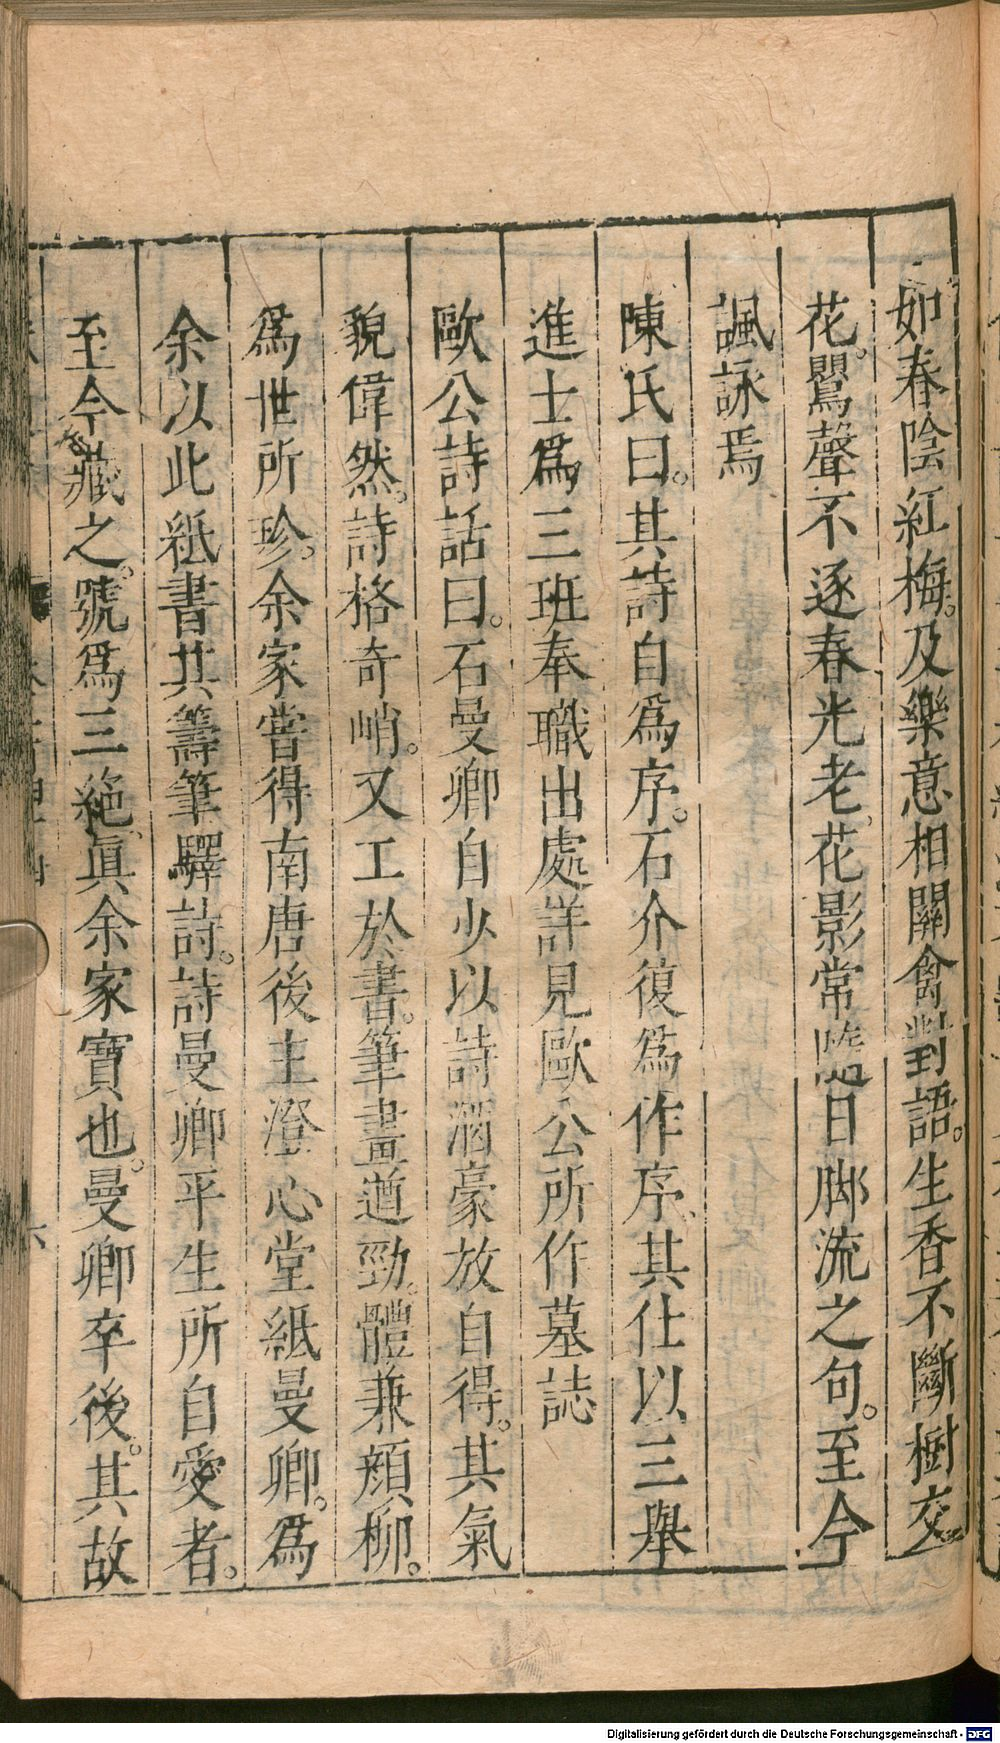 如春陰紅梅。及樂意相關禽對語。生香不斷樹交
花。鸎聲不逐春光老、花影常隨日脚流之句。至今
諷詠焉
陳氏曰。其詩自爲序。石介復爲作序、其仕以三舉
進士爲三班奉職出處詳見歐公所作墓誌
歐公詩話曰。石曼卿自少以詩酒豪放自得。其氣
貌偉然。詩格奇峭。又工於書。筆畫遒勁。體兼顔柳。
爲世所珍。余家嘗得南唐後主澄心堂紙曼卿。爲
余以此紙書其籌筆驛詩。詩曼卿平生所自愛者。
至今藏之。號爲三絕、眞余家寶也。曼卿卒後。其故
六
Digitalisierung gefördert durch die Deutsche Forschungsgemeinschaft - DFG